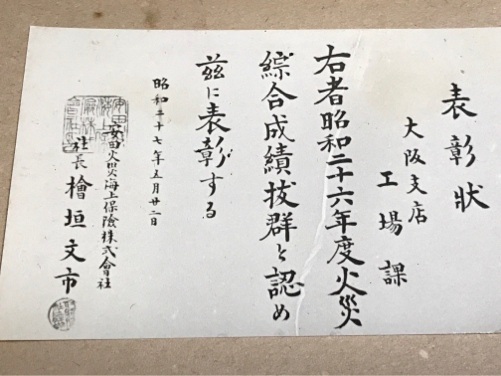 表彰状
大阪支店
工場課
右者昭和二十六年度火災
綜合成績抜群と認め
茲に表彰する
昭和二十七年五月廿二日
安田火災海上保険株式會社
社長 檜垣文市